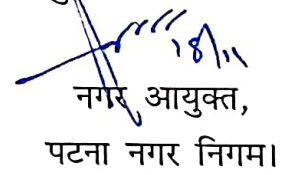 18/11
नगर आयुक्त,
पटना नगर निगम।